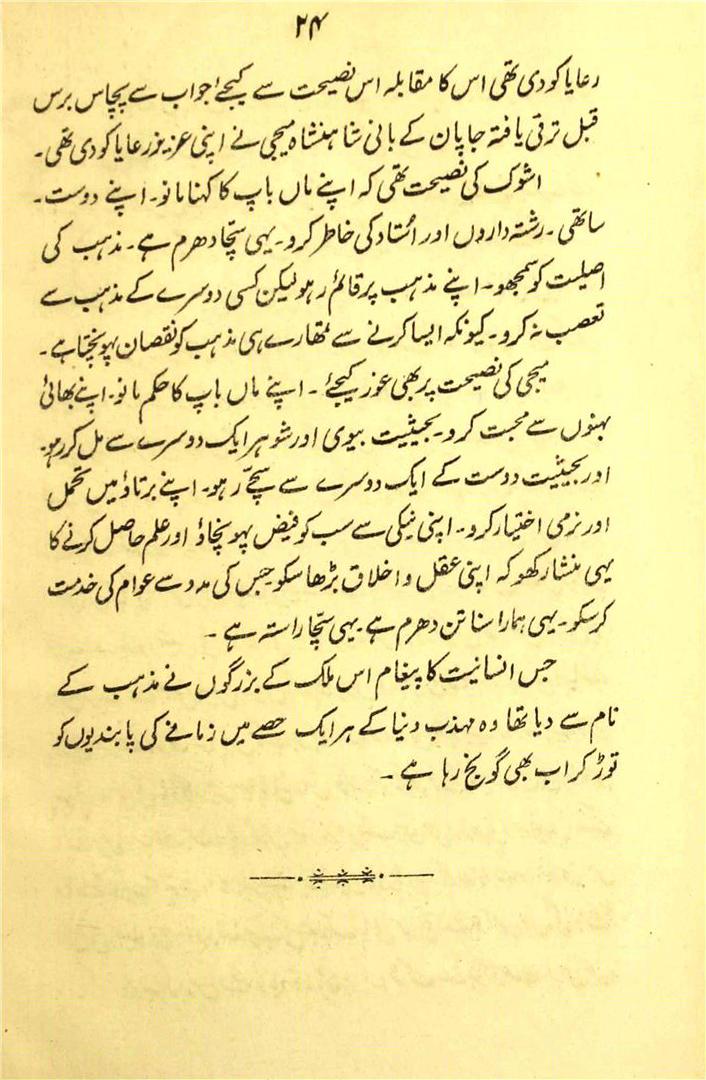 ۲۴
رعایا کو دی تھی اس کا مقابلہ اس نصیحت سے کیجئے جواب سے پچاس برس
قبل ترقی یافتہ جاپان کے بانی شاہنشاہ میجی نے اپنی عزیز رعایا کو دی تھی۔
اشوک کی نصیحت تھی کہ اپنے ماں باپ کا کہنا مانو۔ اپنے دوست۔
ساتھی۔ رشتہ داروں اور استاد کی خاطر کرو۔ یہی سچا دھرم ہے۔ مذہب کی
اصلیت کو سمجھو۔ اپنے مذہب پر قائم رہو لیکن کسی دوسرے کے مذہب سے
تعصب نہ کرو۔ کیونکہ ایسا کرنے سے تمھارے ہی مذہب کو نقصان پہونچتا ہے۔
میجی کی نصیحت پر بھی غور کیجئے۔ اپنے ماں باپ کا حکم مانو۔ اپنے بھائی
بہنوں سے محبت کرو۔ بحیثیت بیوی اور شوہر ایک دوسرے سے مل کر رہو۔
اور بحیثیت دوست کے ایک دوسرے سے سچے رہو۔ اپنے برتاؤ میں تحمل
اور نرمی اختیار کرو۔ اپنی نیکی سے سب کو فیض پہونچاؤ اور علم حاصل کرنے کا
یہی منشار رکھو کہ اپنی عقل و اخلاق بڑھا سکو جس کی مدد سے عوام کی خدمت
کر سکو۔ یہی ہمارا سناتن دھرم ہے یہی سچا راستہ ہے۔
جس انسانیت کا پیغام اس ملک کے بزرگوں نے مذہب کے
نام سے دیا تھا وہ مہذب دنیا کے ہر ایک حصے میں زمانے کی پابندیوں کو
توڑ کر اب بھی گونج رہا ہے۔